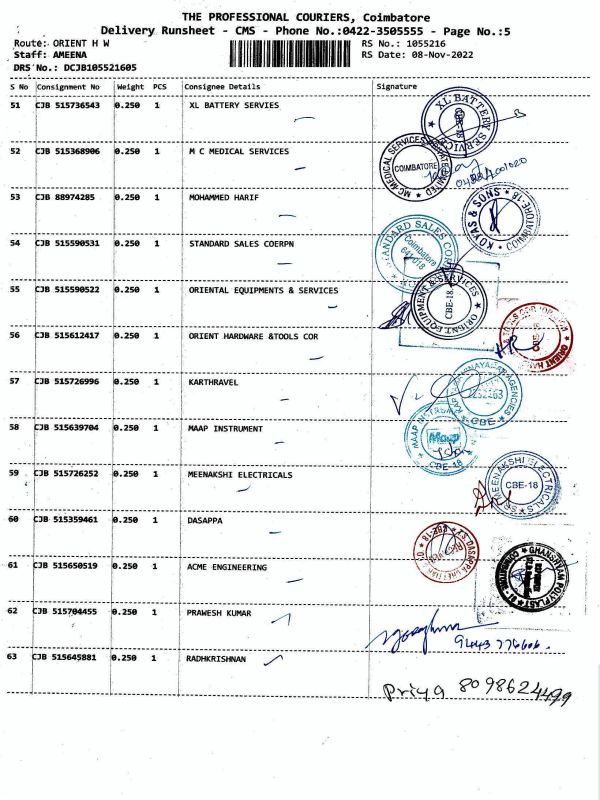 THE PROFESSIONAL COURIERS, Coimbatore
Delivery Runsheet - CMS - Phone No.:0422-3505555 - Page No.:5
Route: ORIENT H W RS No.: 1055216
Staff: AMEENA RS Date: 08-Nov-2022
DRS No.: DCJB105521605
S No Consignment No Weight PCS Consignee Details Signature
51 CJB 515736543 0.250 1 XL BATTERY SERVIES
XL BATTERY SERVICE
52 CJB 515368906 0.250 1 M C MEDICAL SERVICES
MC MEDICAL SERVICES PRIVATE LIMITED
COIMBATORE
53 CJB 88974285 0.250 1 MOHAMMED HARIF
KOYAS & SONS
54 CJB 515590531 0.250 1 STANDARD SALES COERPN
STANDARD SALES
Coimbatore
641018
55 CJB 515590522 0.250 1 ORIENTAL EQUIPMENTS & SERVICES
ORIENT EQUIPMENT & SERVICES
CBE-18.
56 CJB 515612417 0.250 1 ORIENT HARDWARE &TOOLS COR
57 CJB 515726996 0.250 1 KARTHRAVEL
AGENCIES
CBE
58 CJB 515639704 0.250 1 MAAP INSTRUMENT
MAAP
Maap
CBE-18
59 CJB 515726252 0.250 1 MEENAKSHI ELECTRICALS
MEENAKSHI ELECTRICALS
CBE-18
60 CJB 515359461 0.250 1 DASAPPA
DASAPPA
CBE-18
61 CJB 515650519 0.250 1 ACME ENGINEERING
GHANSHYAM POLYPLAST
62 CJB 515704455 0.250 1 PRAWESH KUMAR
9443 776606.
63 CJB 515645881 0.250 1 RADHKRISHNAN
Priya 8098624499